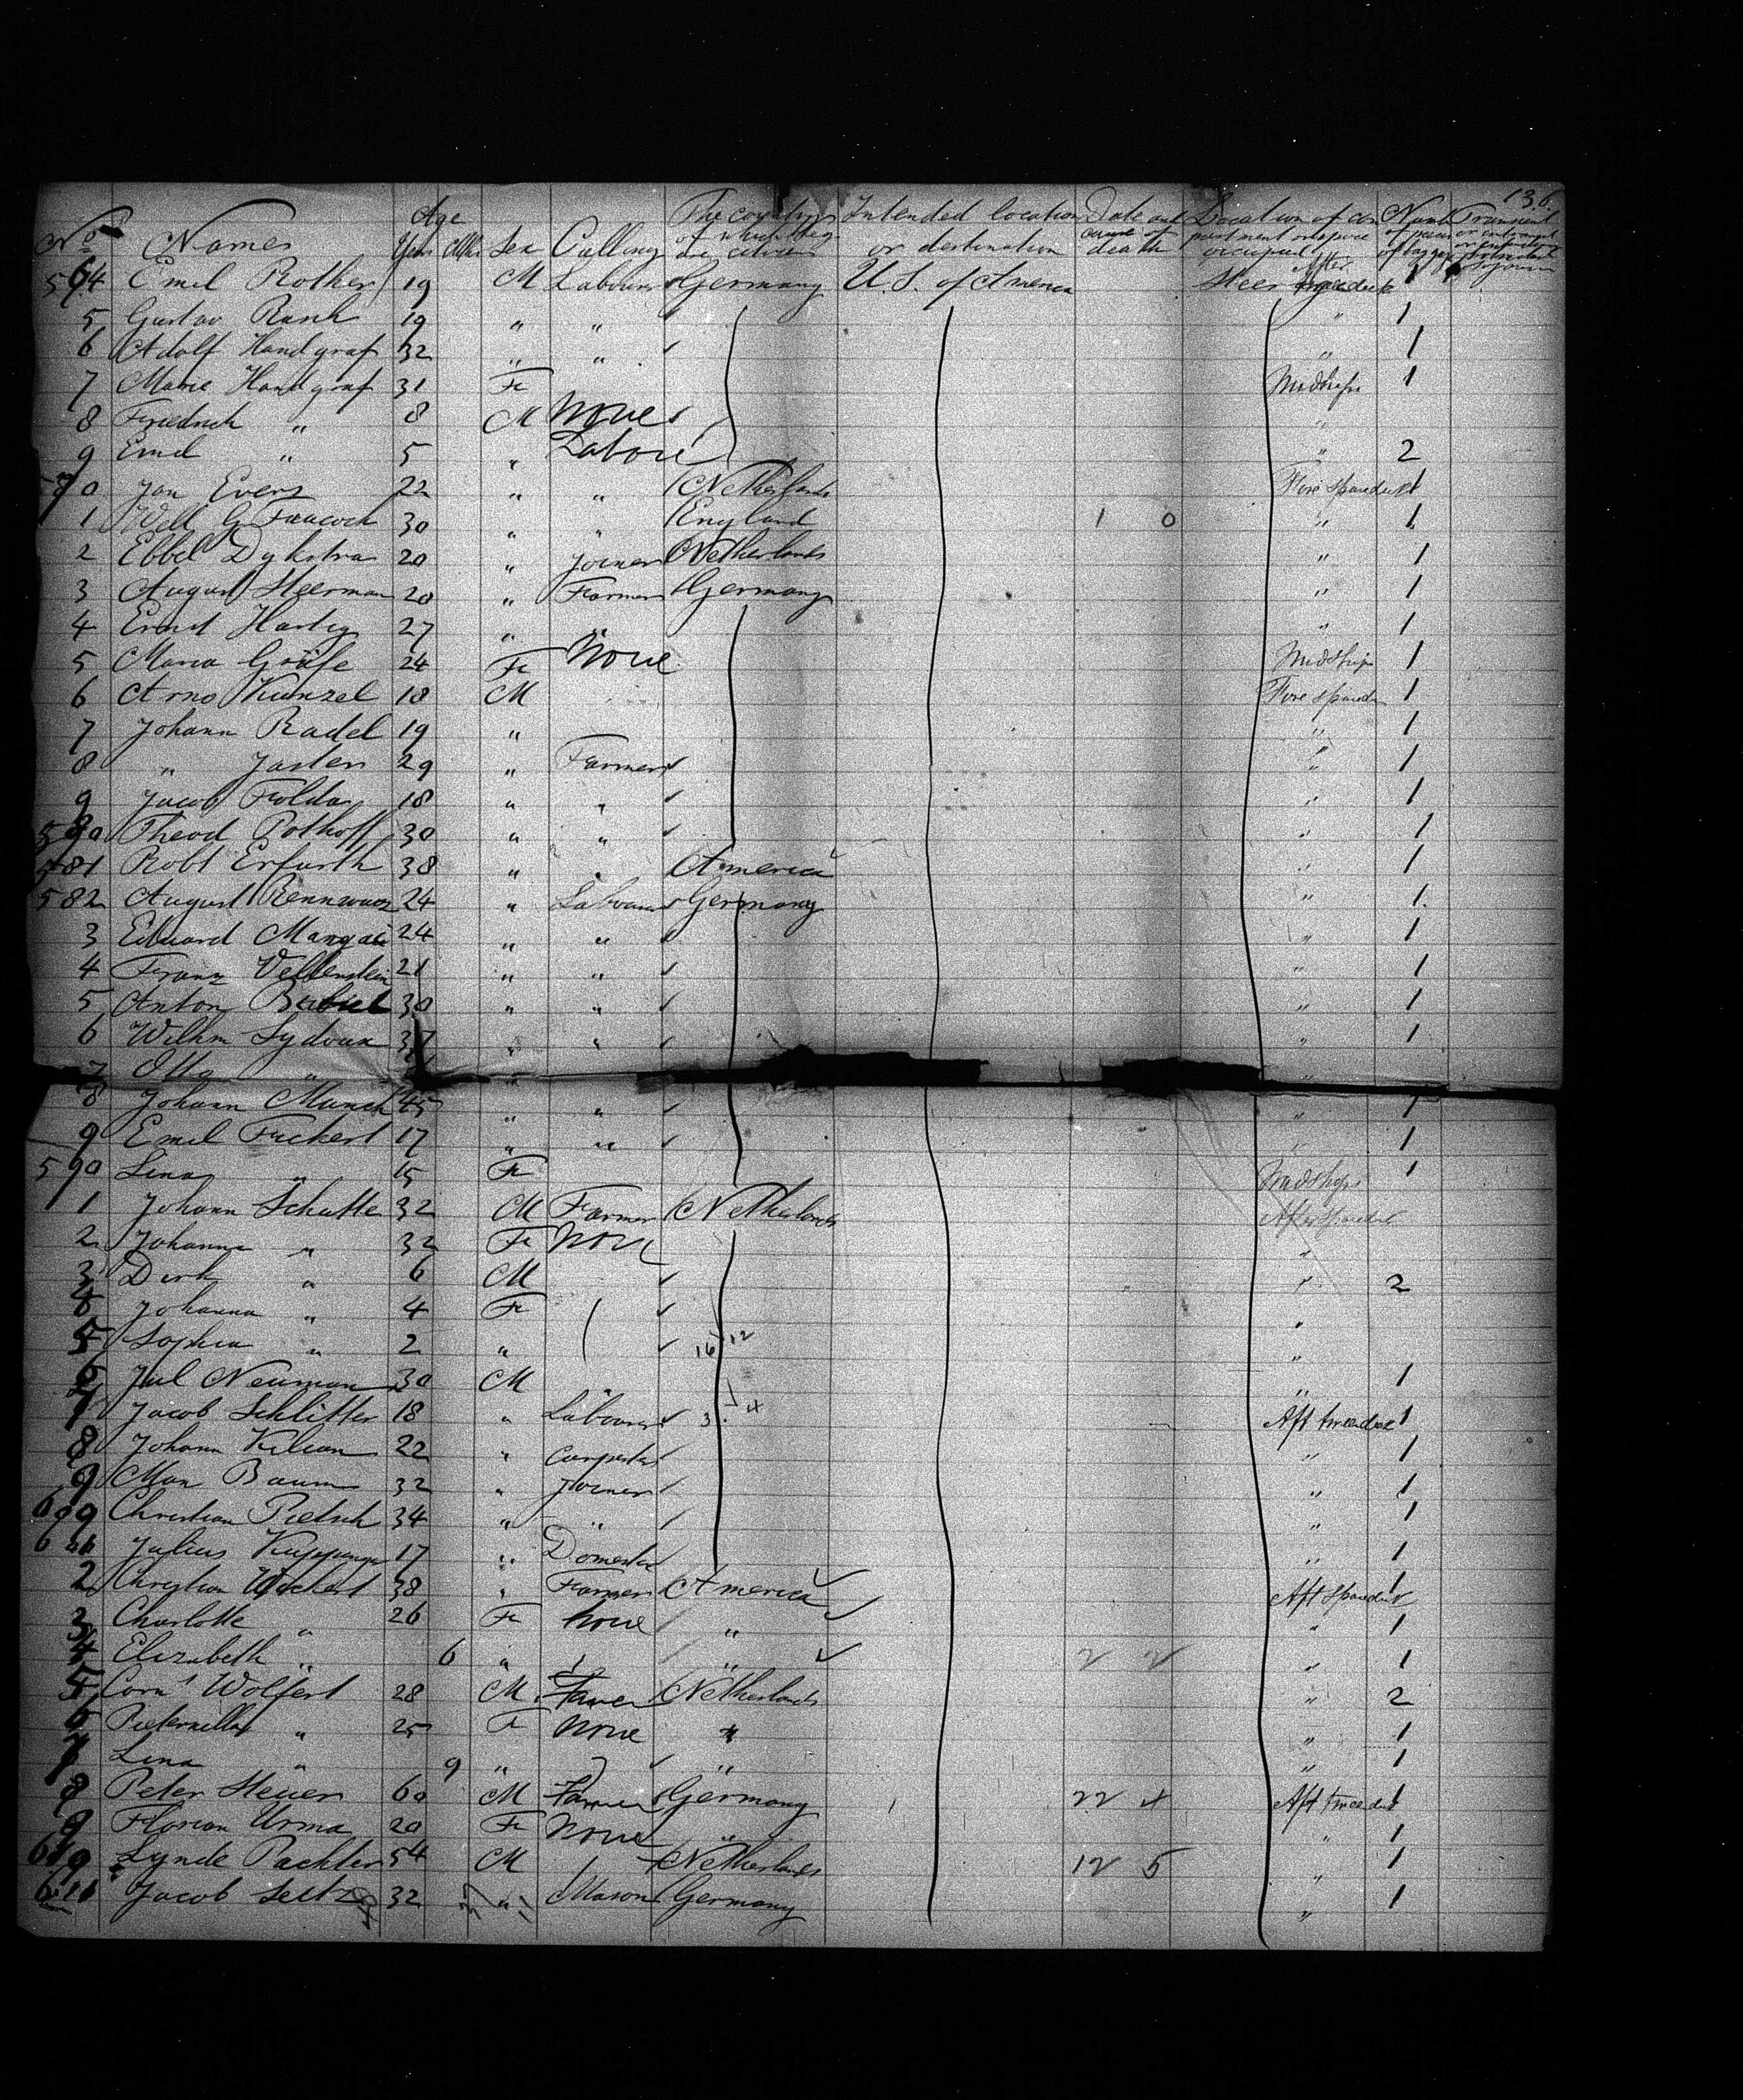 136
Age
No Names Years Mths Sex Calling The country of which they are citizens Intended location or destination Date and cause of death Location of compartment or space occupied Number of pieces of baggage Transient or in transit or intending protracted sojourn
564 Emil Rother 19 M Labourer Germany U.S. of America Steer After 1
5 Gustav Rank 19 " " " 1
6 Adolf Handgraf 32 " " " 1
7 Marie Handgraf 31 Fe Midships 1
8 Friedrich " 8 M None "
9 Emil " 5 " Labourer " 2
570 Jan Evers 22 " " Netherlands Fore sparedeck 1
1 Will G Peacock 30 " England 1 0 " 1
2 Ebbel Dykstra 20 " Joiner Netherlands " 1
3 August Steerman 20 " Farmer Germany " 1
4 Ernst Hartig 27 " " " 1
5 Maria Gräfe 24 Fe None Midships 1
6 Arno Kunzel 18 M Fore sparedk 1
7 Johann Radel 19 " " 1
8 " Jasten 29 " Farmer " 1
9 Jacob Folda 18 " " " 1
580 Theod Pothoff 30 " " " 1
581 Robt Erfurth 38 " " America " 1
582 August 24 " Labourer Germany " 1
3 Eduard 24 " " " 1
4 Franz Vellenstein 21 " " " 1
5 Anton Babiel 30 " " " 1
6 Wilhm Sydoux 37 " " " 1
7 Otto " "
8 Johann Munch 45 " " " 1
9 Emil Fickert 17 " " " 1
590 Lina " 15 Fe Midships 1
1 Johann Schutte 32 M Farmer Netherlands After sparedeck
2 Johanna " 32 Fe None "
3 Dirk " 6 M " 2
4 Johanna " 4 Fe "
5 Sophia " 2 " 16 12 "
6 Jul Neumann 30 M " " 1
7 Jacob Schlitter 18 " Labourer 3 4 Aft tweendeck 1
8 Johann Kilian 22 " Carpenter " 1
9 Max Baum 32 " Joiner " 1
600 Christian Pietsch 34 " " " 1
601 Julius 17 " Domestic " 1
2 Christian Wachert 38 " Farmer America Aft sparedeck 1
3 Charlotte " 26 Fe None " " 1
4 Elizabeth " 6 " " 2 2 " 1
5 Corns Wolfert 28 M Farmer Netherlands " 2
6 Pieternella " 25 Fe None " " 1
7 Lina " 9 " " " 1
8 Peter Steuer 60 M Farmer Germany 22 4 Aft tweendeck 1
9 Florian Urma 20 Fe None " " 1
610 Lynde Pachter 54 M Netherlands 12 5 " 1
611 Jacob Seitz 32 " Mason Germany " 1